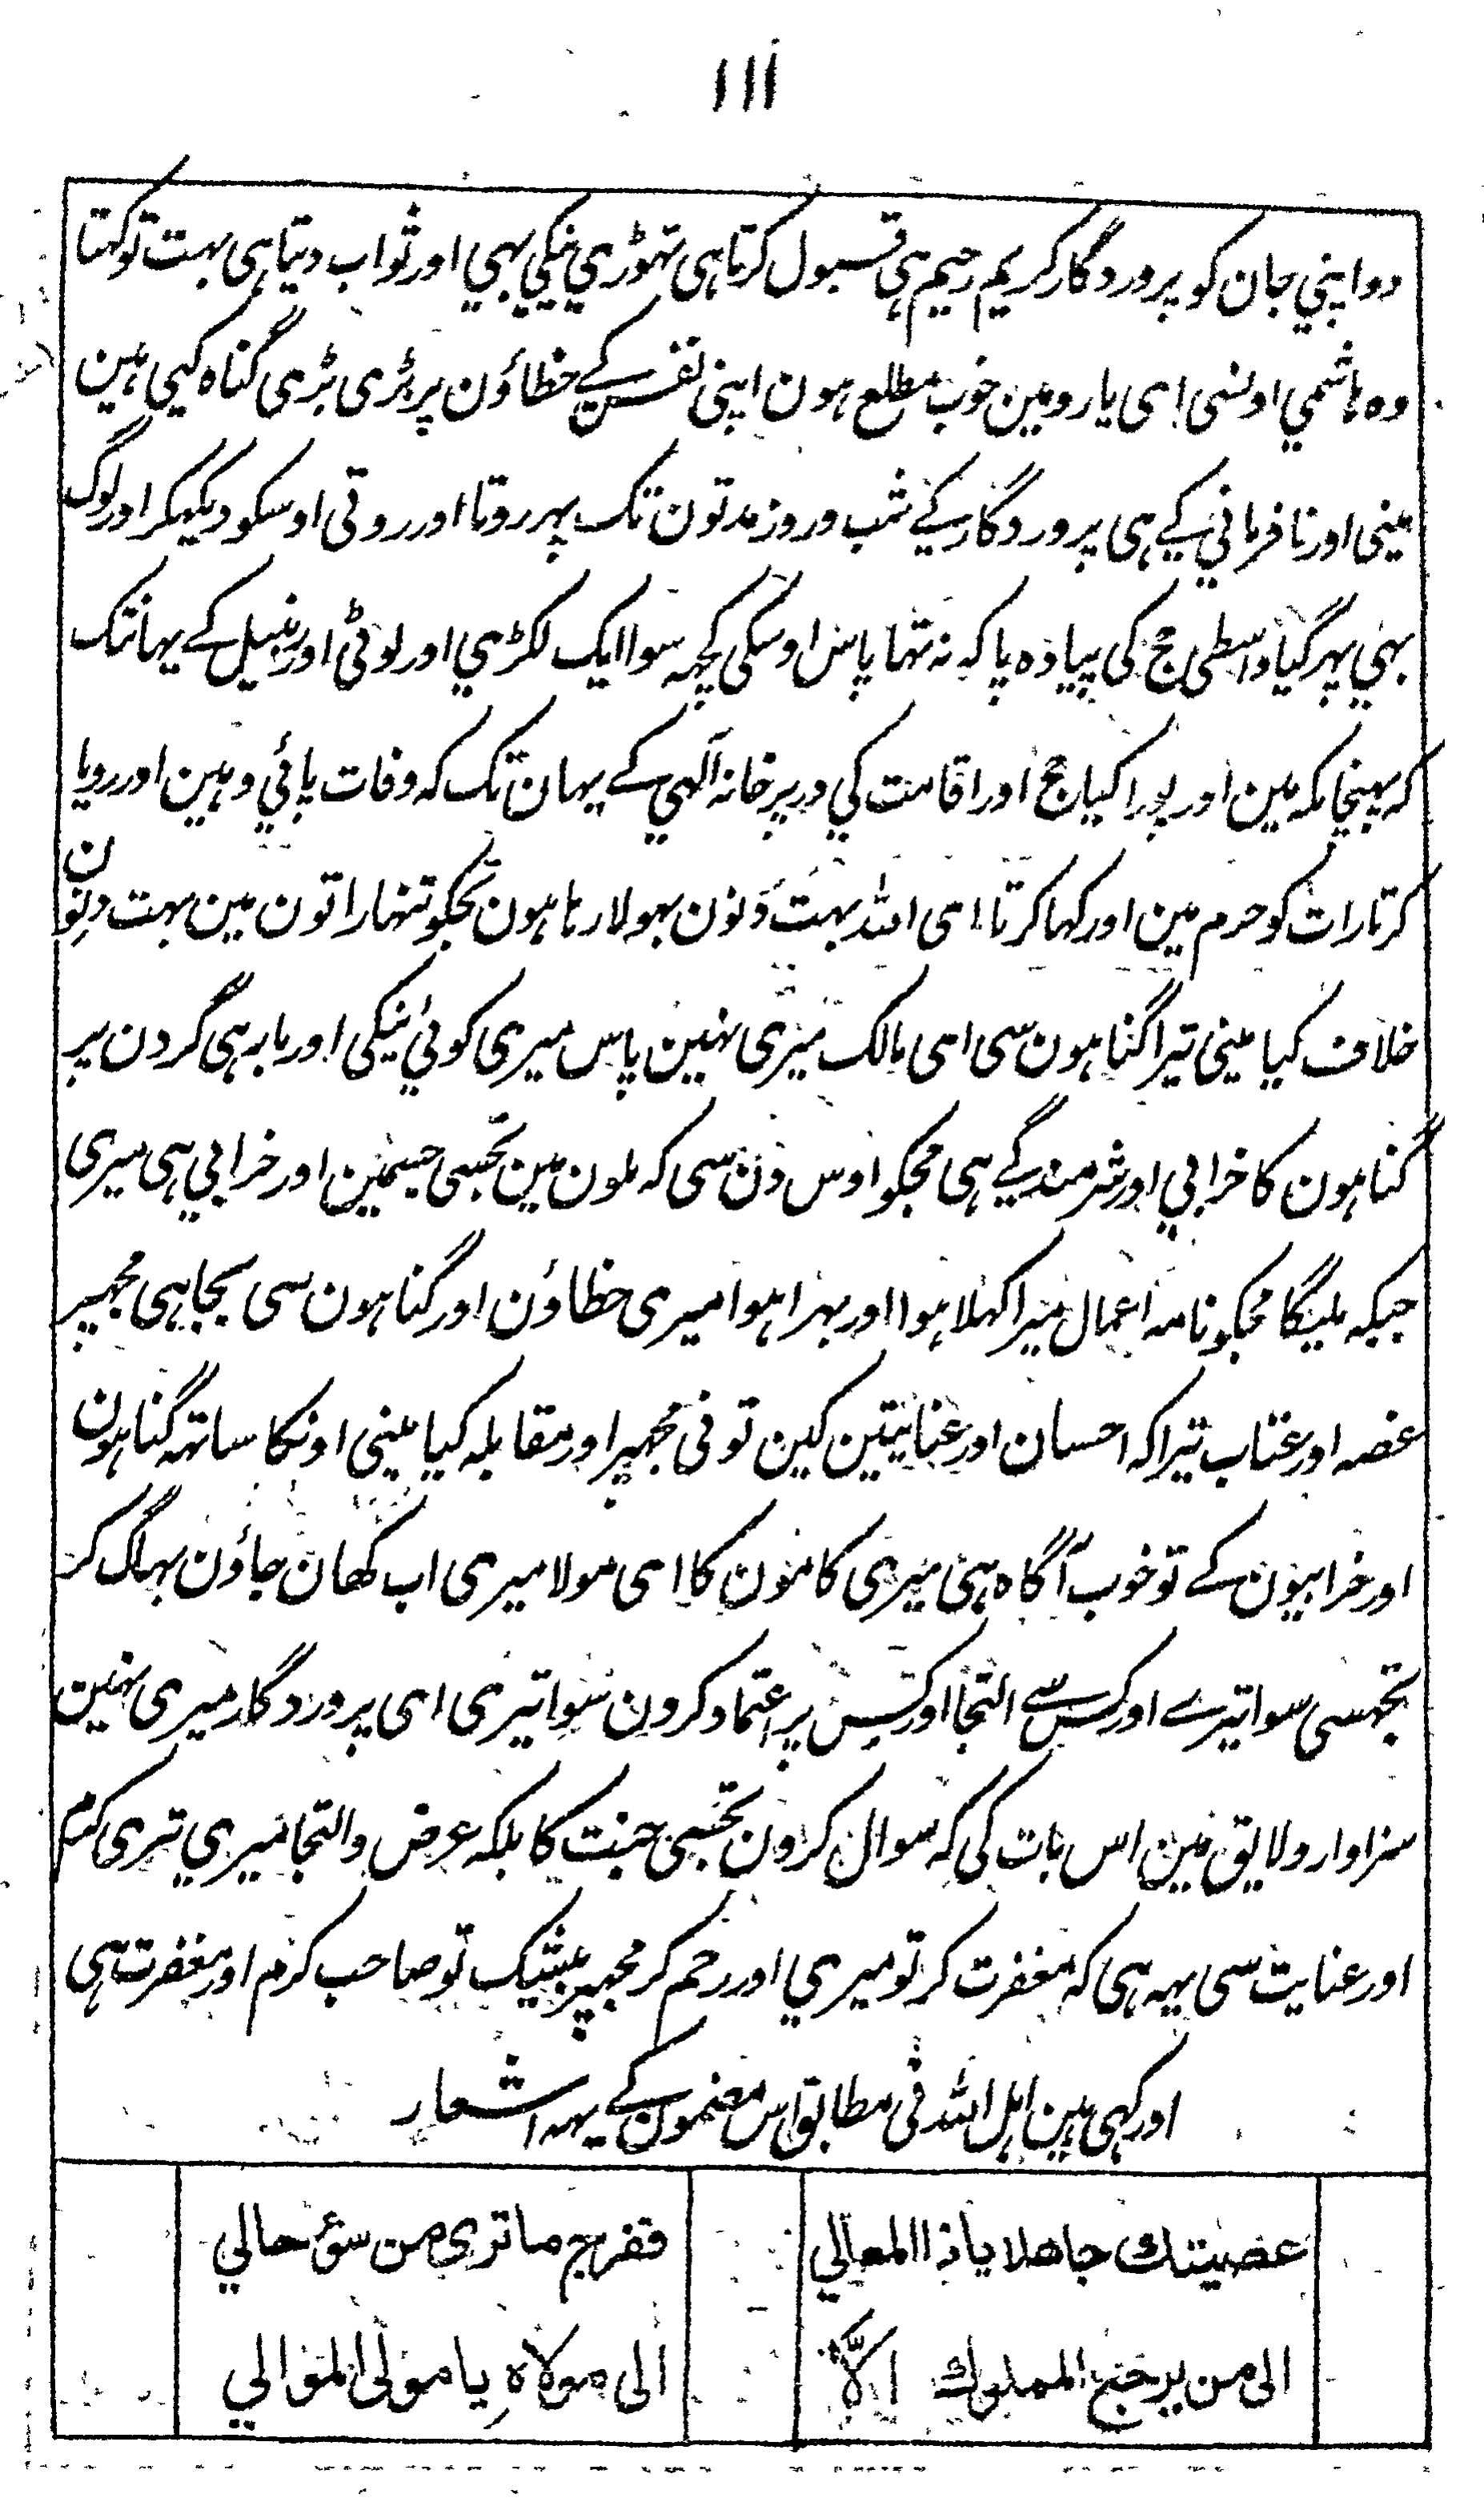 ۱۱۱
دو اپنی جان کو پروردگار کریم رحیم ہی قبول کرتا ہی تہوڑي نیکي بہي اور ثواب دیتا ہی بہت تو کہتا
وہ ہاشمي اونسی ای یارو مین خوب مطلع ہون اپنی نفس کے خطاؤن پر بڑی بڑی گناہ کیی ہین
مینی اور نافرماني کے ہی پروردگار کے شب و روز مدتون تک پہر روتا اور روتی اوسکو دیکہکر اور لوگ
بہي پہر گیا واسطی حج کی پیادہ پا کہ نہ تہا پاس اوسکی کچہہ سوا ایک لکڑي اور لوٹی اور زنبیل کے یہانتک
کہ پہنچا مکہ مین اور پورا کیا حج اور اقامت کي در پر خانہ الٰہي کے یہان تک کہ وفات پائي وہین اور رویا
کرتا رات کو حرم مین اور کہا کرتا ای اللہ بہت دنون بہولا رہا ہون تجکو تنہا راتون مین بہت دنون
خلاف کیا مینی تیرا گناہون سی ای مالک میری نہین پاس میری کوئي نیکی اور بار ہی گردن پر
گناہون کا خرابي اور شرمندگے ہی مجکو اوس دن سی کہ ملون مین تجسی جسمین اور خرابي ہی میری
جبکہ ملیگا مجکو نامہ اعمال میرا کہلا ہوا اور بہرا ہوا میری خطاؤن اور گناہون سی بجا ہی مجہپر
غصہ اور عتاب تیرا کہ احسان اور عنایتین کین تو نی مجہپر اور مقابلہ کیا مینی اونکا ساتہہ گناہون
اور خرابیون کے تو خوب آگاہ ہی میری کامون کا ای مولا میری اب کہان جاؤن بہاگ کر
تجہسی سوا تیرے اور کس سے التجا اور کس پر اعتماد کرون سوا تیری ای پروردگار میری نہین
سزاوار و لایق مین اس بات کی کہ سوال کرون تجسی جنت کا بلکہ عرض و التجا میري تیری کرم
اور عنایت سی یہہ ہی کہ مغفرت کر تو میري اور رحم کر مجہپر بیشک تو صاحب کرم اور مغفرت ہی
اور کہی ہین اہل اللہ نی مطابق اس مضمون کے یہہ اشعار
عصيتك جاهلا ياذا المعالي ففرج ما ترى من سوء حالي
الى من يرجع المملوك الّا الى مولاهِ يا مولى الموالي